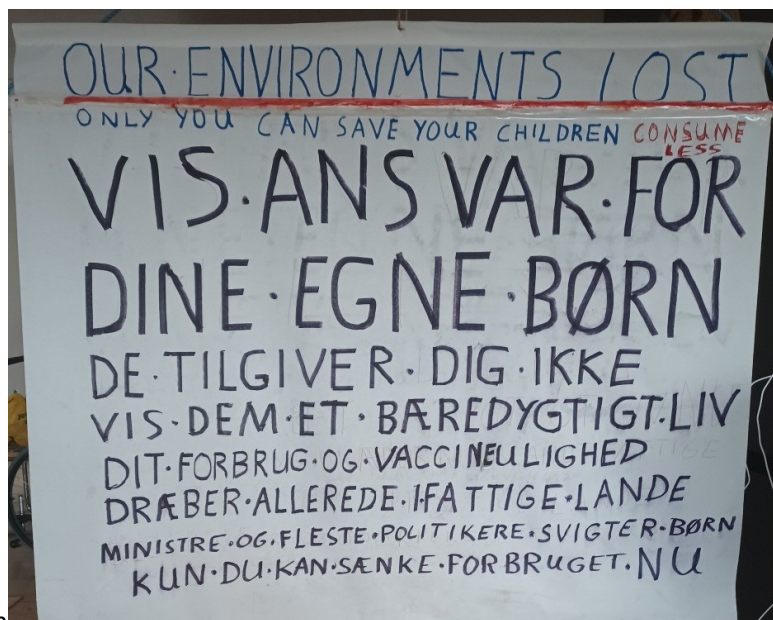 OUR·ENVIRONMENTS LOST
ONLY YOU CAN SAVE YOUR CHILDREN CONSUME
LESS
VIS·ANSVAR·FOR
DINE·EGNE·BØRN
DE·TILGIVER·DIG·IKKE
VIS·DEM·ET·BÆREDYGTIGT·LIV
DIT·FORBRUG·OG·VACCINEULIGHED
DRÆBER·ALLEREDE·I·FATTIGE·LANDE
MINISTRE·OG·FLESTE·POLITIKERE·SVIGTER·BØRN
KUN·DU·KAN·SÆNKE·FORBRUGET·NU